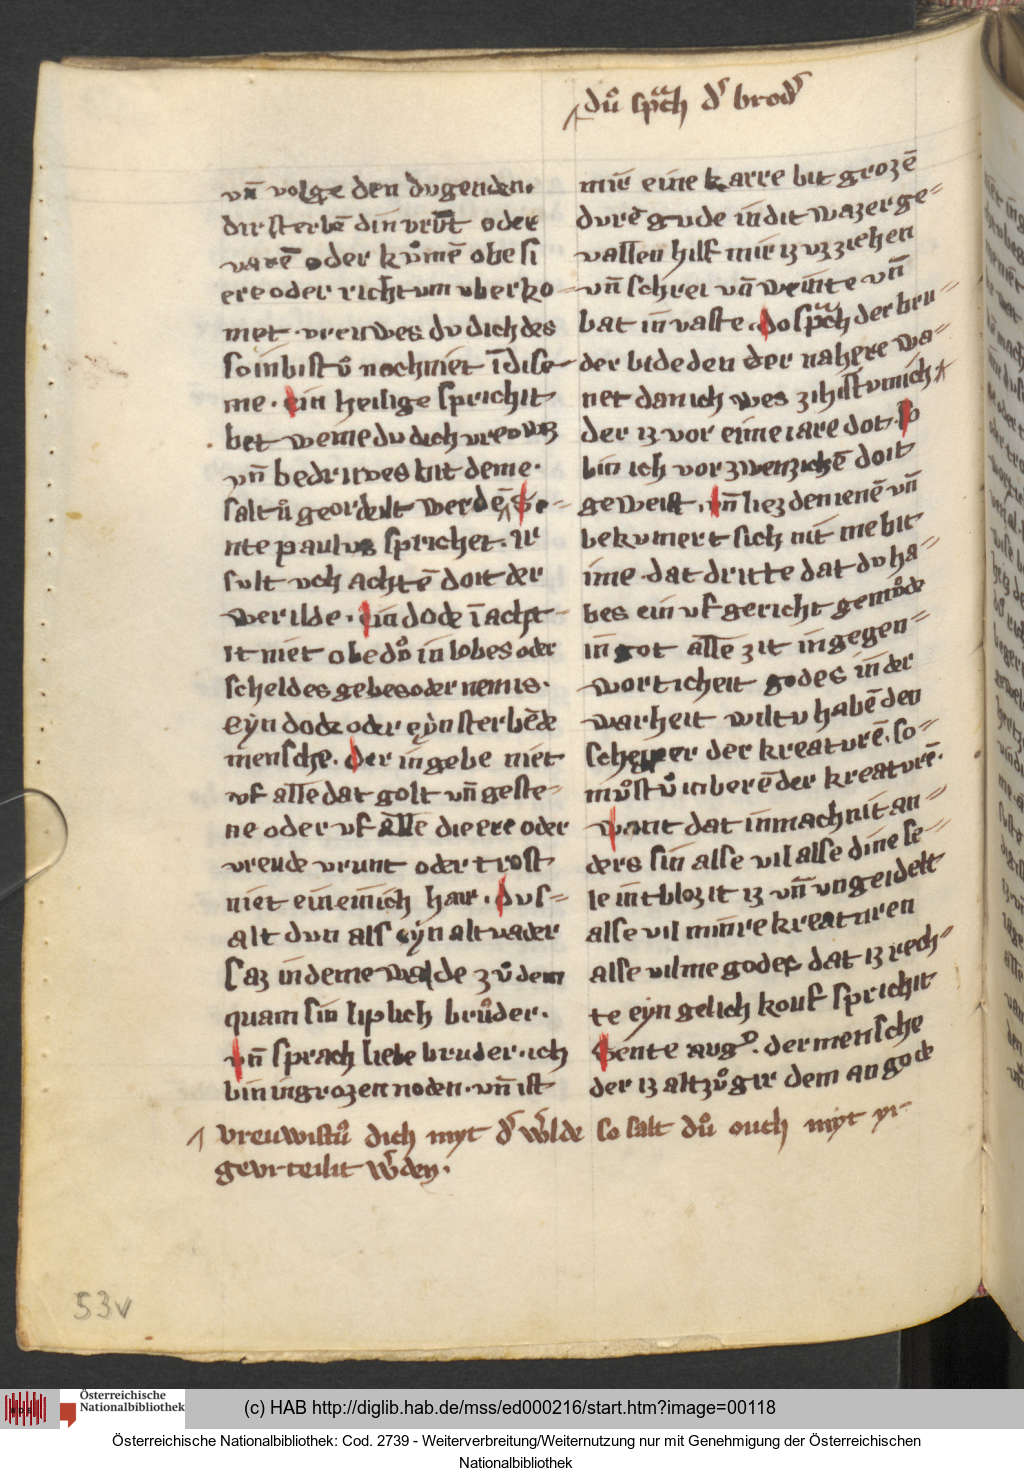 dů sp̄ch d͛ brod͛
vn̄ volge den dvgenden.
dir sterbē din vrūt oder
varē oder kůmē obe si
ere oder richtvm vberko-
met. vrewes dv dich des
so in bistů noch niet ī dise-
me. ein heilige sprichit
bet weine dv dich vreowz
vn̄ bedrwes hit deme.
saltů geordeilt werdē. Se-
nte pavlvs sprichet. ir
svlt vch achtē doit der
werilde. ein dode ī acht-
it niet obe dů in lobes oder
scheldes gebes oder nemis.
Eyn dode oder eyn sterbēde
mensche. der in gebe niet
vf alle dat golt vn̄ geste-
ne oder vf alle die ere oder
vreude vrunt oder trost
niet ein einich har. dvs-
alt dvn als eyn altvader
saz in deme walde zů dem
quam sin liplich brůder.
vn̄ sprach liebe bruder. ich
bin in grozen noden. vn̄ ist
vreuwistů dich myt d͛ w͛lde so salt dů ouch myt yr
gevrteilit w͛den.
mir eine karre bit grozē
dvrē gude in dit wazer ge-
vallen hilf mir iz vz ziehen
vn̄ schrei vn̄ weinte vn̄
bat in vaste. do sp̄ch der bru-
der bide den der nahere wa-
net dan ich wes zihist v mich
der iz vor eime iare dot. so
bin ich vor zwenzichē doit
geweist. vn̄ liez den ienē vn̄
bekvmert sich nit me bit
ime. dat dritte dat dv ha-
bes ein vf gericht gemůde
in got alle zit in gegen-
worticheit godes in der
warheit wiltv habē den
schepper der kreatvrē. so-
můstů inberē der kreatvrē.
want dat in mach nit an-
ders sin alse vil alse dine se-
le intblozit iz vn̄ vngeidelt
alse vil minre kreatvren
alse vil me godes dat iz rech-
te eyn gelich kouf sprichit
Sente avg9. der mensche
der iz altzů gir dem an gode
53v
Österreichische
Nationalbibliothek
(c) HAB http://diglib.hab.de/mss/ed000216/start.htm?image=00118
Österreichische Nationalbibliothek: Cod. 2739 - Weiterverbreitung/Weiternutzung nur mit Genehmigung der Österreichischen
Nationalbibliothek